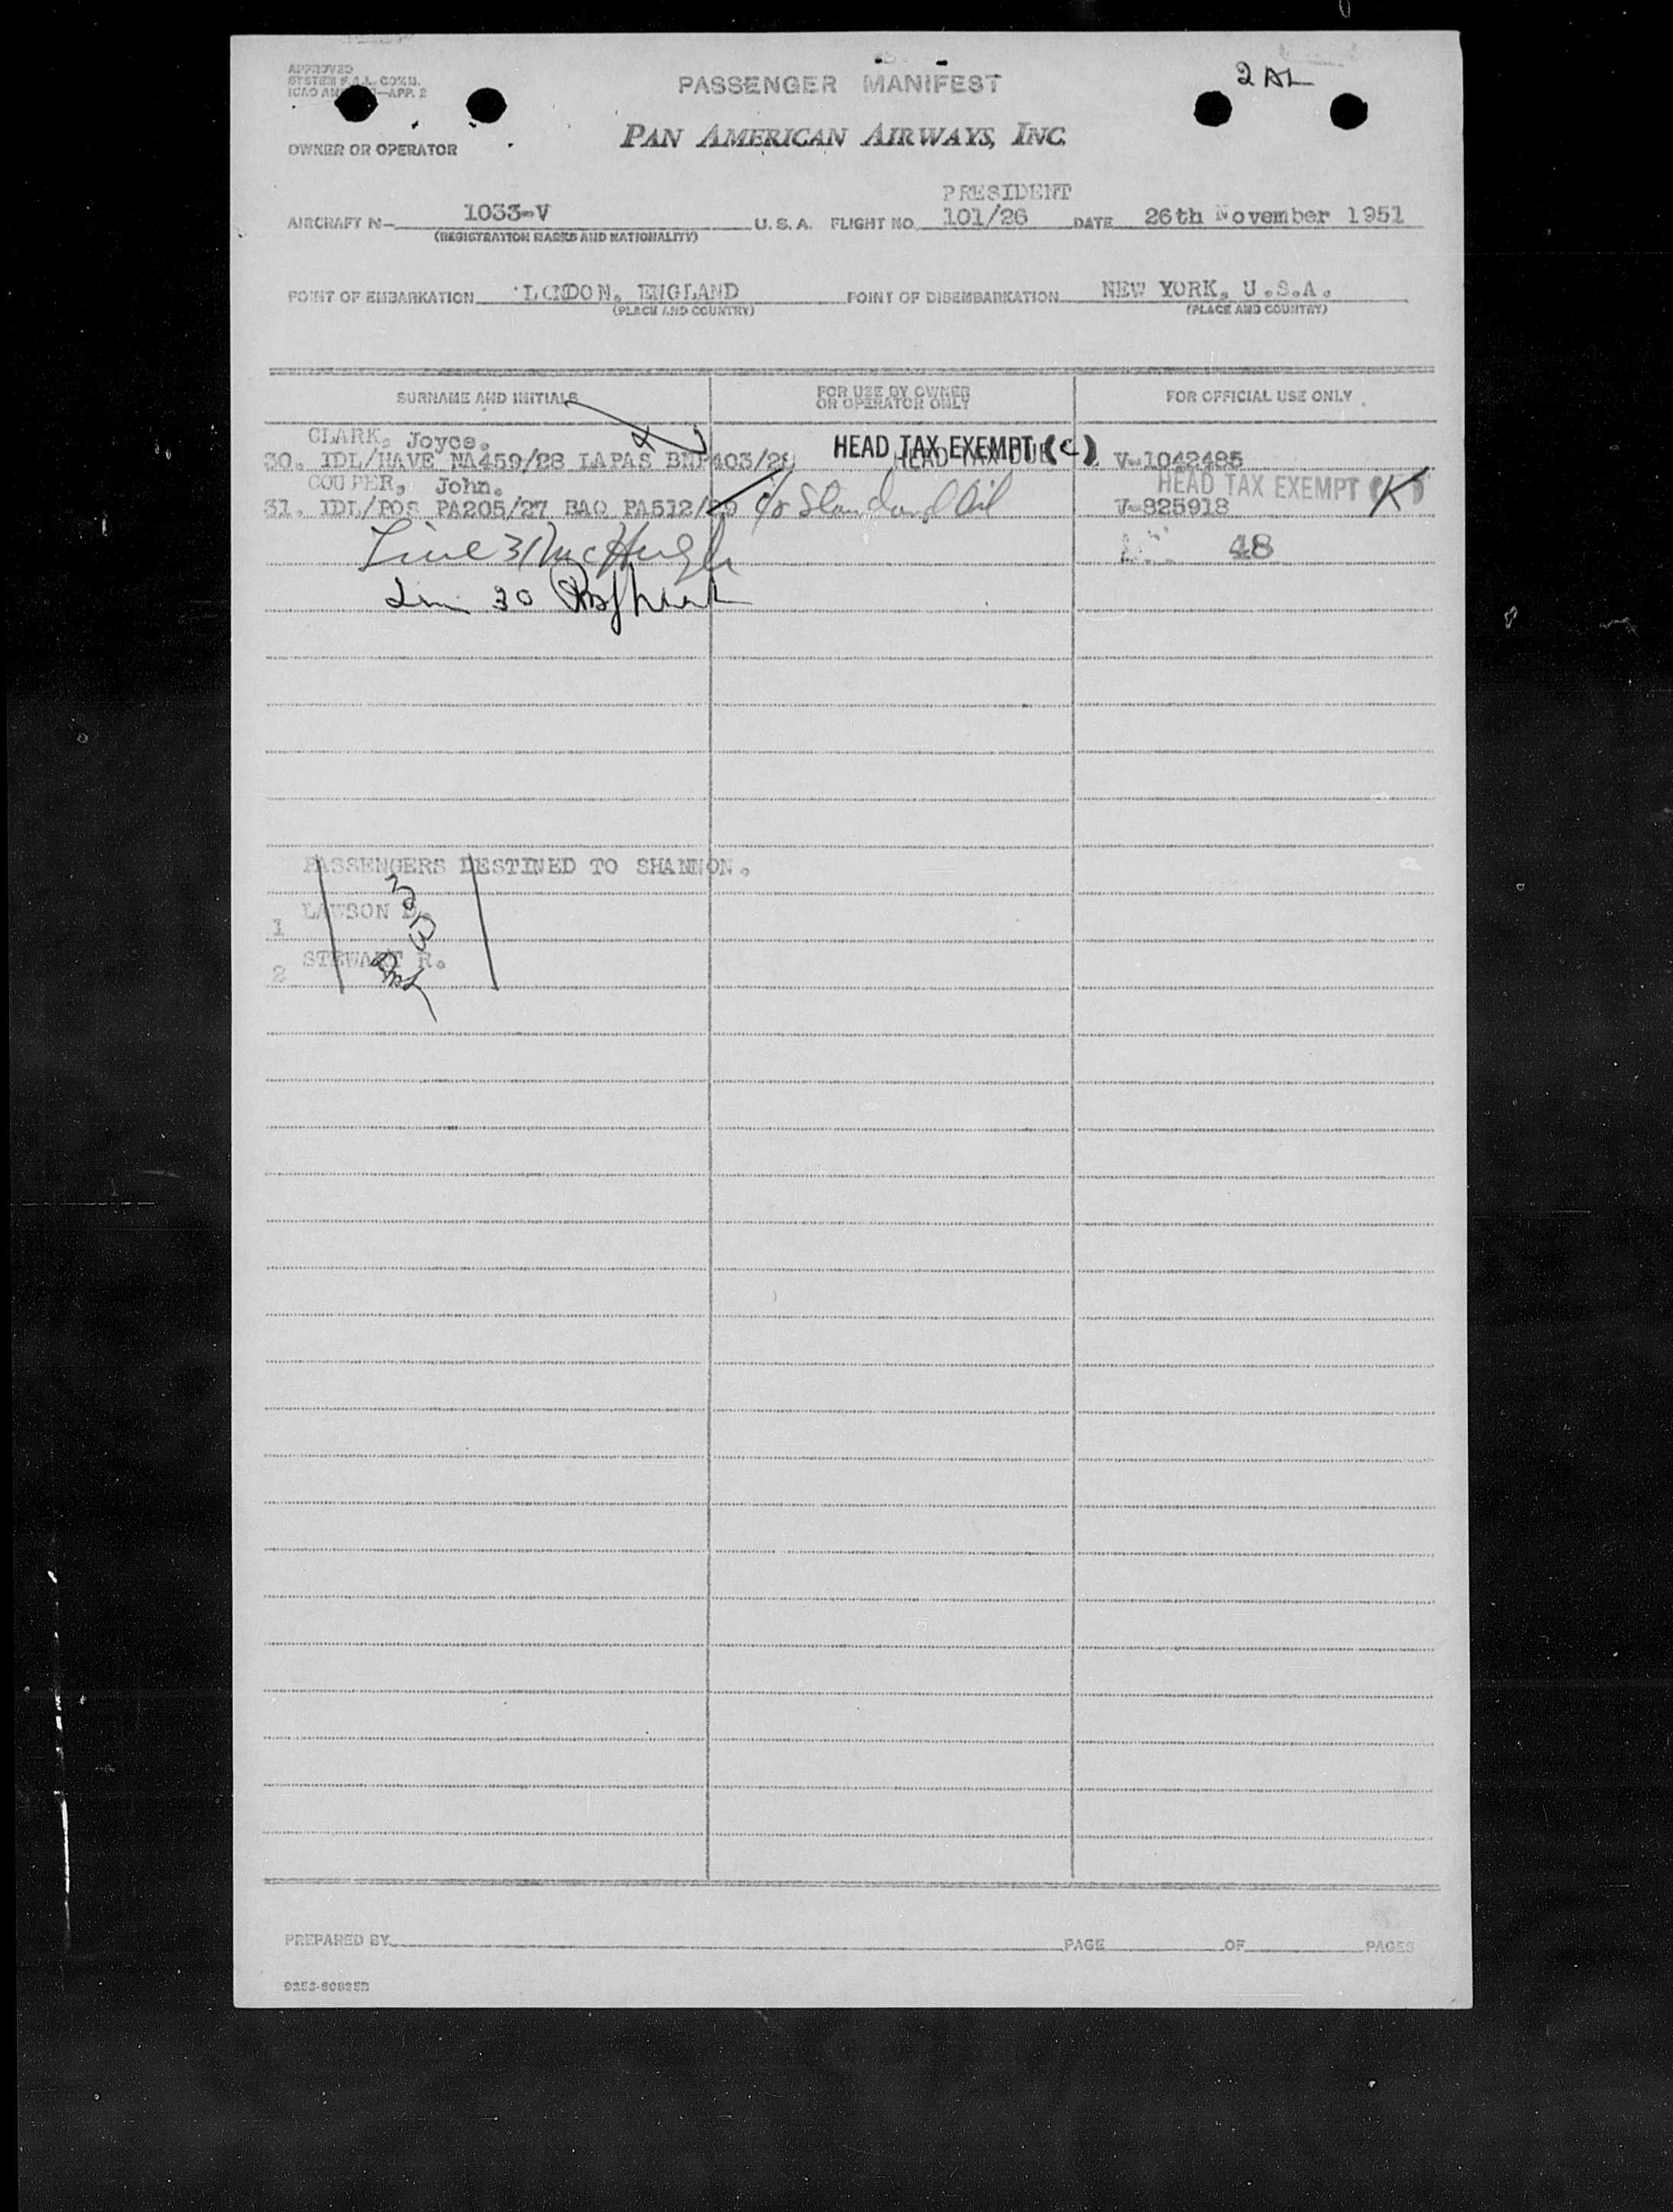 APPROVED
SYSTEM F.A.L. COMM.
ICAO AN —APP. 2
PASSENGER MANIFEST
2 AL
OWNER OR OPERATOR
PAN AMERICAN AIRWAYS, INC.
PRESIDENT
AIRCRAFT N- 1033-V U. S. A. FLIGHT NO. 101/26 DATE 26th November 1951
(REGISTRATION MARKS AND NATIONALITY)
POINT OF EMBARKATION LONDON, ENGLAND POINT OF DISEMBARKATION NEW YORK, U.S.A.
(PLACE AND COUNTRY) (PLACE AND COUNTRY)
SURNAME AND INITIALS FOR USE BY OWNER OR OPERATOR ONLY FOR OFFICIAL USE ONLY
CLARK, Joyce.
30. IDL/HAVE NA459/28 LAPAS BNF403/29 HEAD TAX EXEMPT (C) HEAD TAX DUE V-1042485
COUPER, John. HEAD TAX EXEMPT (K)
31. IDL/POS PA205/27 BAQ PA512/ c/o Standard Oil V-825918
Line 31 McHugh 48
30
PASSENGERS DESTINED TO SHANNON.
1 LAWSON D.
2 STEWART R.
PREPARED BY PAGE OF PAGES